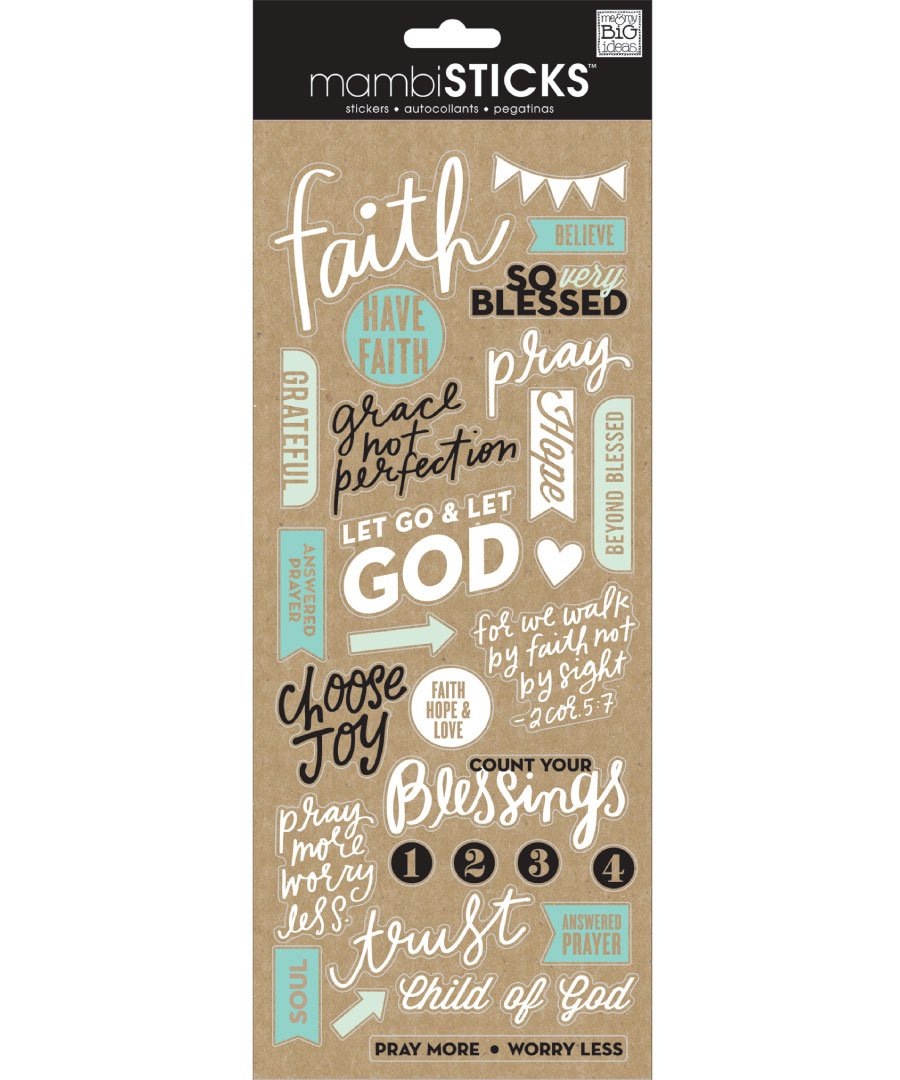 me&my
BiG
ideas.
mambiSTICKS™
stickers • autocollants • pegatinas
faith
BELIEVE
SO very
BLESSED
HAVE
FAITH
pray
GRATEFUL
grace
not
perfection
Hope
BEYOND BLESSED
LET GO & LET
GOD
ANSWERED
PRAYER
for we walk
by faith not
by sight
-2 cor. 5:7
choose
JOY
FAITH
HOPE &
LOVE
COUNT YOUR
Blessings
pray
more
worry
less.
1 2 3 4
trust
ANSWERED
PRAYER
SOUL
Child of God
PRAY MORE • WORRY LESS